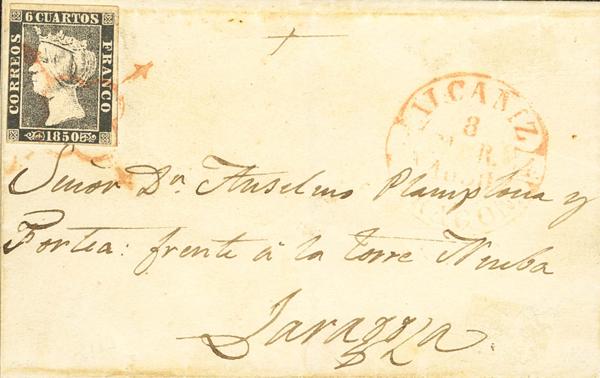 6 CUARTOS
CORREOS
FRANCO
1850
ALCAÑIZ
8
Señor Dn Anselmo Plamplona y
Fortea: frente á la torre Nueba
Zaragoza